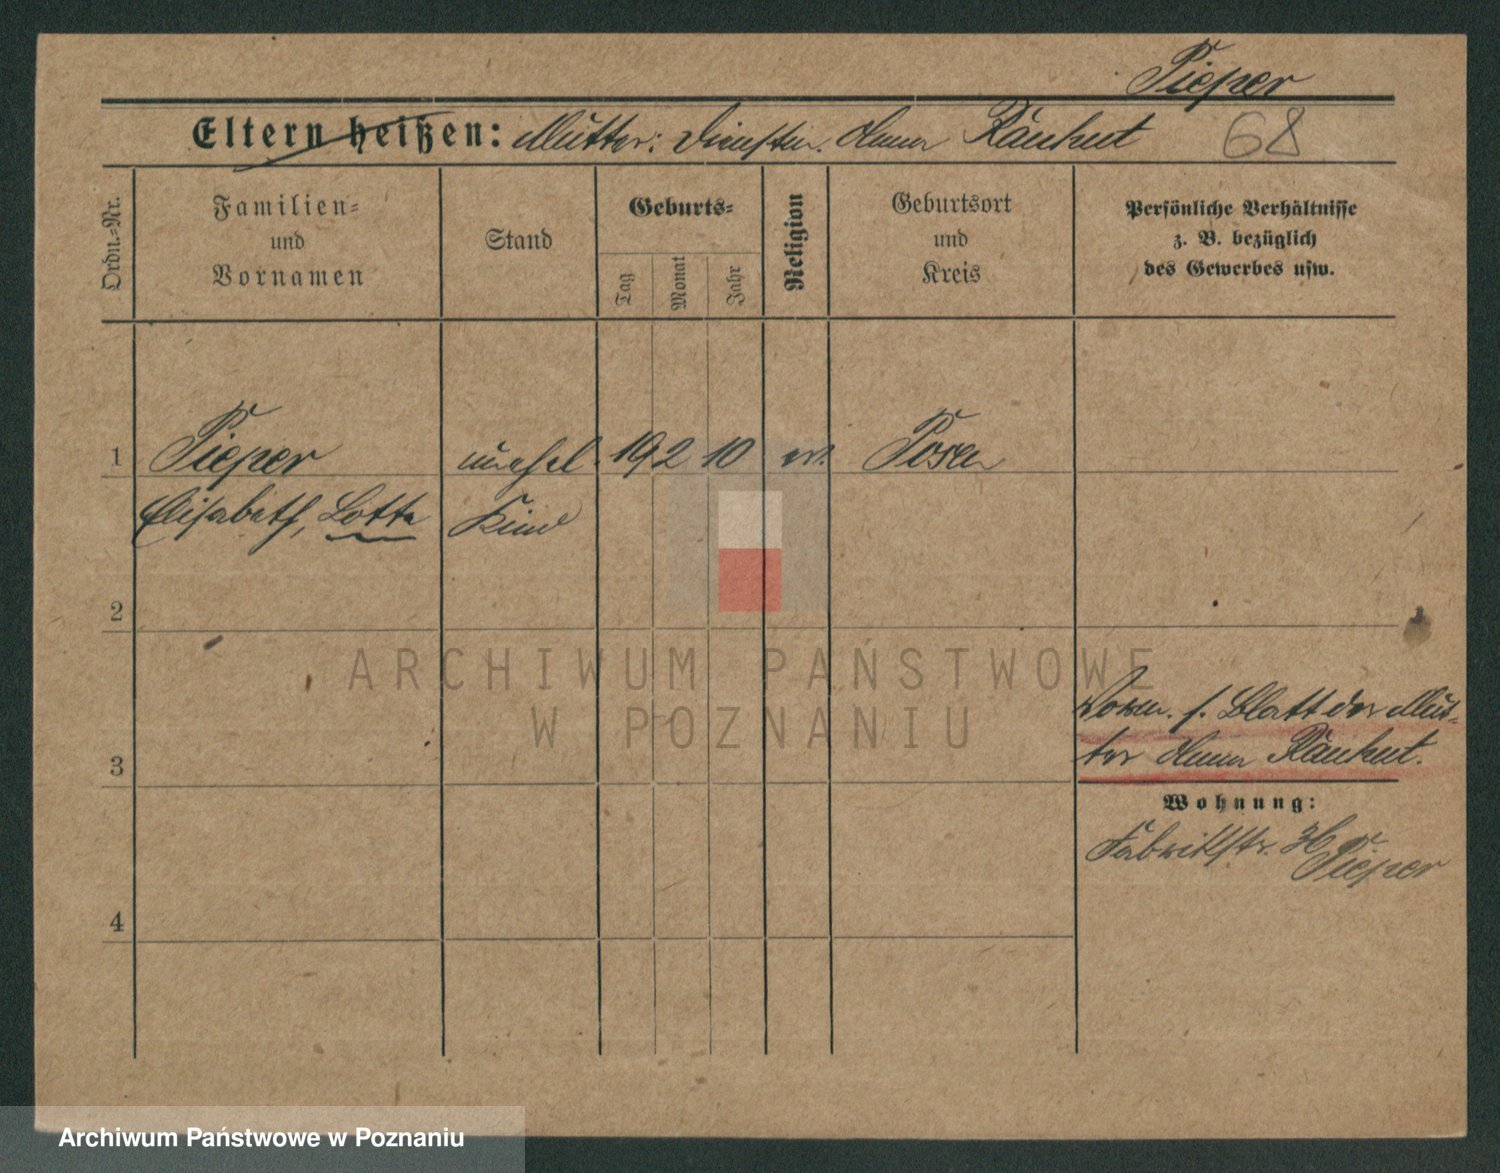 Pieper
Eltern heißen: Mutter: Dienstm. Anna Räuhut 68
Ordn.=Nr.
Familien=
und
Vornamen
Stand
Geburts=
Tag
Monat
Jahr
Religion
Geburtsort
und
Kreis
Persönliche Verhältnisse
z. B. bezüglich
des Gewerbes usw.
1 Pieper unehel. 19 2 10 ev. Posen
Elisabeth, Lotte Kind
2
ARCHIWUM PAŃSTWOWE
W POZNANIU
s. Blatt der Mut-
3 ter Anna Räuhut.
Wohnung:
Fabrikstr. 36
Pieper
4
Archiwum Państwowe w Poznaniu